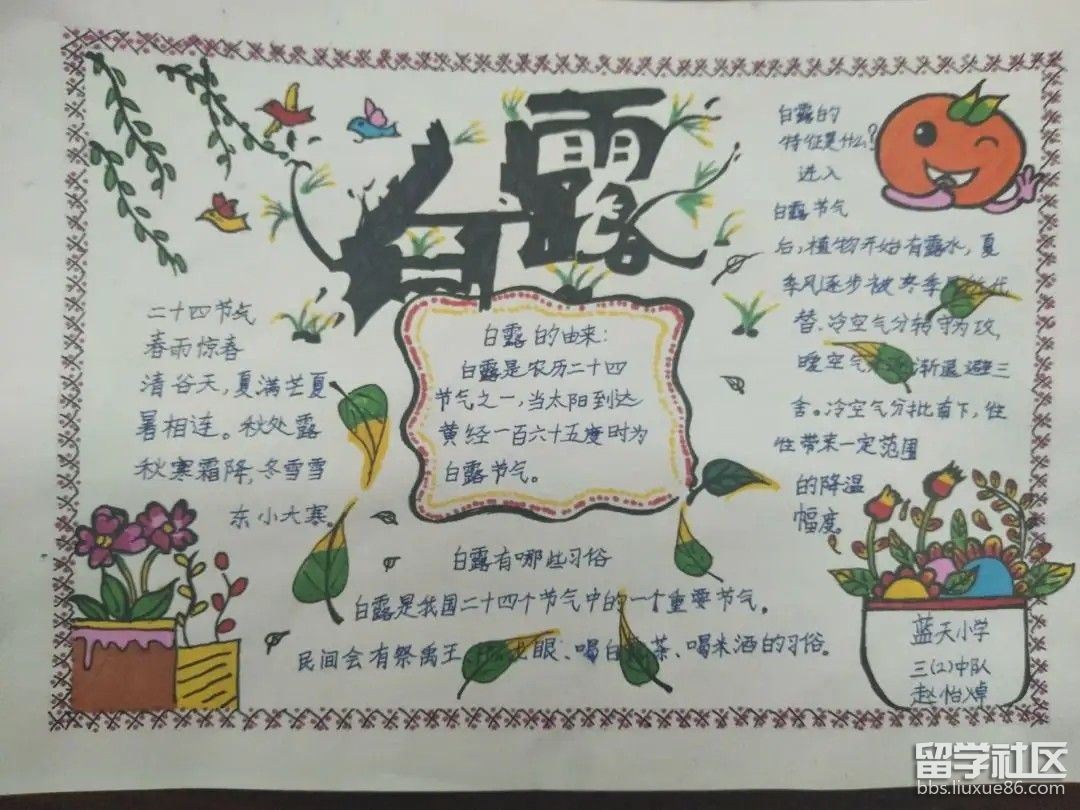 白露
二十四节气
春雨惊春
清谷天,夏满芒夏
暑相连。秋处露
秋寒霜降,冬雪雪
东小大寒。
白露的由来:
白露是农历二十四
节气之一,当太阳到达
黄经一百六十五度时为
白露节气。
白露的
特征是什么?
进入
白露节气
后,植物开始有露水,夏
季风逐步被冬季风 代
替、冷空气分转守为攻,
暖空气 渐退避三
舍。冷空气分批南下,往
往带来一定范围
的降温
幅度。
白露有哪些习俗
白露是我国二十四个节气中的一个重要节气。
民间会有祭禹王、 龙眼、喝白 茶、喝米酒的习俗。
蓝天小学
三(2)中队
赵怡
留学社区
bbs.liuxue86.com